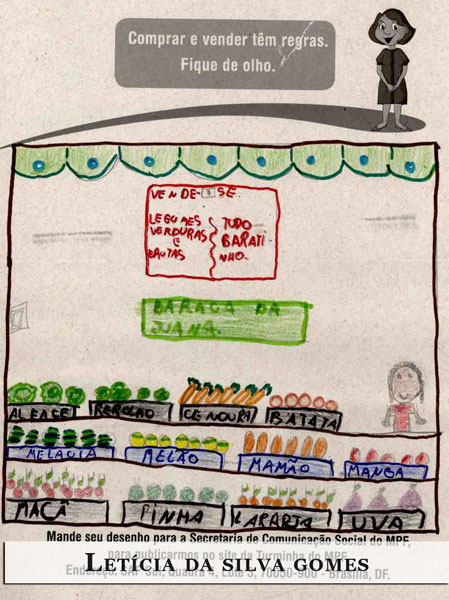 Comprar e vender têm regras.
Fique de olho.
VENDE-SE
LEGUMES
VERDURAS
E
FRUTAS
TUDO
BARATI
NHO.
BARACA DA
JUANA.
ALFACE REPOLHO CENOURA BATATA
MELACIA MELÃO MAMÃO MANGA
MAÇÃ PINHA LARARJA UVA
Mande seu desenho para a Secretaria de Comunicação Social do MPF,
para publicarmos no site da Turminha do MPF.
LETÍCIA DA SILVA GOMES
Endereço: SAF Sul, Quadra 4, Lote 3, 70050-900 - Brasília, DF.